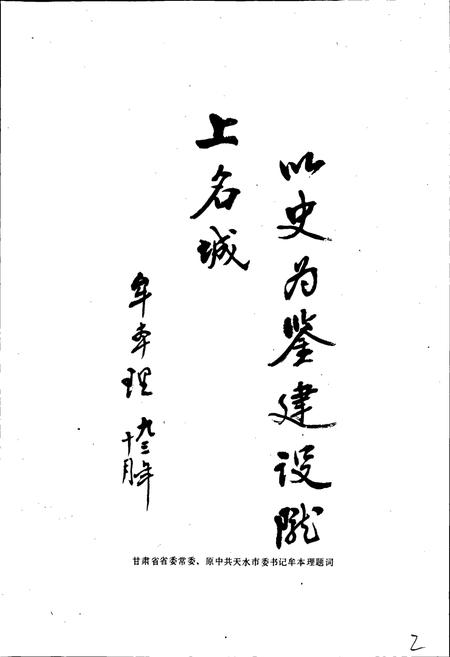 以史为鉴建设陇
上名城
牟本理
九三年
十月
甘肃省省委常委、原中共天水市委书记牟本理题词
2